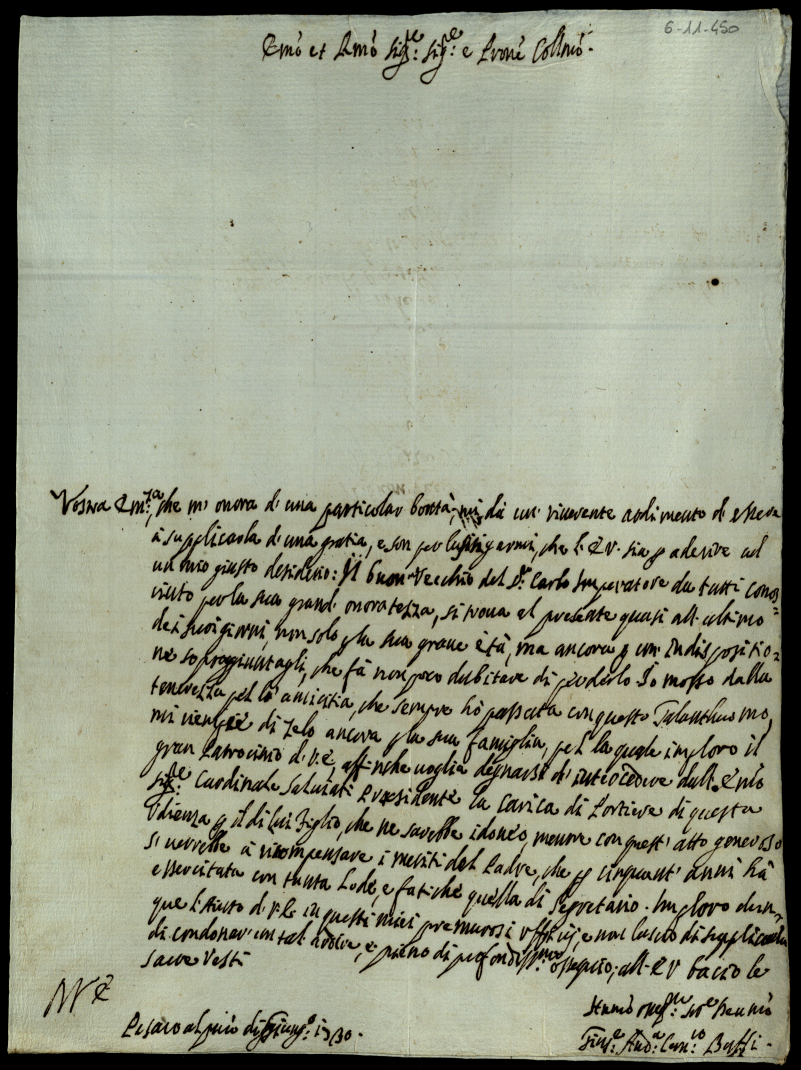 6-11-450
Emô et Rmô Sigre: Sigre: e Prone Collmô.
Vostra Emza:, che m'onora d'una particolar bontà, mi dà un riverente ardimento di
à supplicarla d'una gratia, e son per lusingarmi, che l'E.V. sia p aderire ad
un mio giusto desiderio: Il buon Vecchio del Sr. Carlo Imperatore da tutti conos=
ciuto per la sua grand'onoratezza, si trova al presente quasi all'ultimo
de i suoi giorni, non solo p la sua grave età, ma ancora p un'Indispositio=
ne sopraggiuntagli, che fà non poco dubitare di perderlo. Io mosso dalla
tenerezza per l'amicitia, che sempre hò passata con questo Galanthuomo,
mi vien di zelo ancora p la sua famiglia, per la quale imploro il
gran Patrocinio di V.E., affinche voglia degnarsi d'intercedere dall'Emô
Sigre: Cardinale Salviati Presidente la carica di Portiere di questa
Udienza p il di lui Figlio, che ne sarebbe idoneo, mentre con quest'atto generoso
si verrebbe à ricompensare i meriti del Padre, che p cinquant'anni hà
essercitata con tanta Lode, e fatiche quella di Segretario. Imploro dun=
que l'aiuto di V.E. in questi miei premurosi uffitij, e non lascio di supplicarla
di condonar un tal ardire, e pieno di profondissmo: ossequio, all'E.V. bacio le
sacre Vesti
Pesaro al primo di Giugo: 1730.
Humô Sre
Giuse: Anda: Bossi.